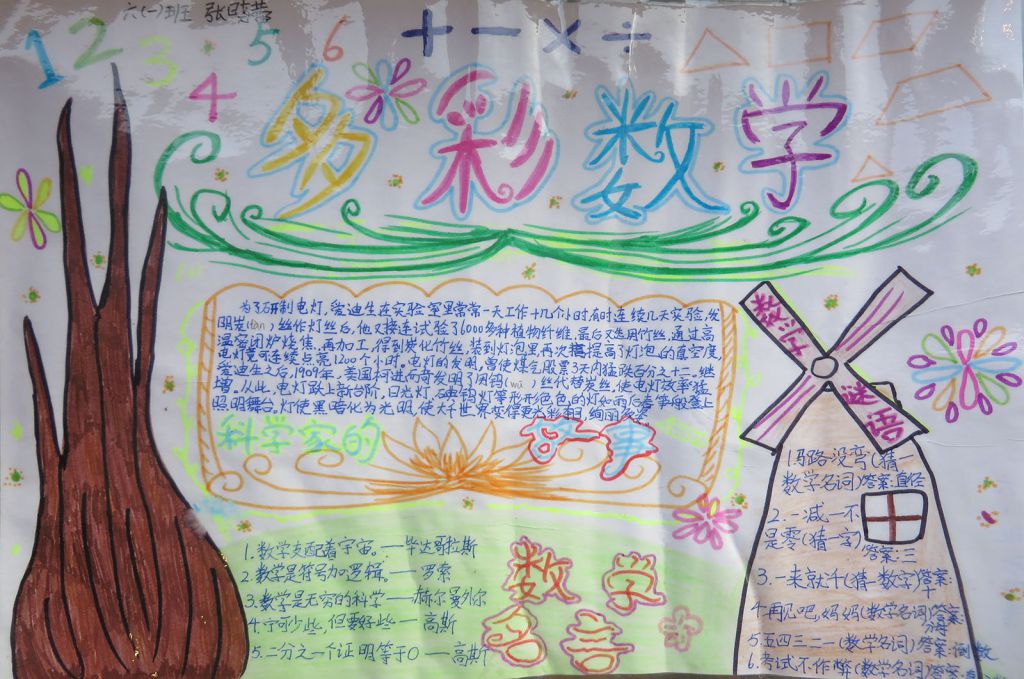 六(一)班 张晓蕾
1 2 3 4 5 6
+ - × ÷
多彩数学
为了研制电灯,爱迪生在实验室里常常一天工作十几个小时,有时连续几天实验,发
明炭(tàn)丝作灯丝后,他又接连试验了6000多种植物纤维,最后又选用竹丝,通过高
温密闭炉烧焦,再加工,得到炭化竹丝,装到灯泡里,再次提高了灯泡的真空度,
电灯竟可连续点亮1200个小时。电灯的发明,曾使煤气股票3天内猛跌百分之十二。继
爱迪生之后,1909年,美国柯进而奇发明了用钨(wū)丝代替炭丝,使电灯效率猛
增。从此,电灯跃上新台阶,日光灯、碘钨灯等形形色色的灯如雨后春笋般登上
照明舞台。灯使黑暗化为光明,使大千世界变得更光彩夺目,绚丽多姿。
科学家的 故事
1.数学支配着宇宙。——毕达哥拉斯
2.数学是符号加逻辑。——罗素
3.数学是无穷的科学——赫尔曼外尔
4.宁可少些,但要好些——高斯
5.二分之一个证明等于0——高斯
数学
名言
数学
谜语
1.马路没弯(猜一
数学名词)答案:直径
2.一减一不
是零(猜一字)
答案:三
3.一来就千(猜一数字)答案:
十
4.再见吧,妈妈(数学名词)答案:
分母
5.五四三二一(数学名词)答案:倒数
6.考试不作弊(数学名词)答案: